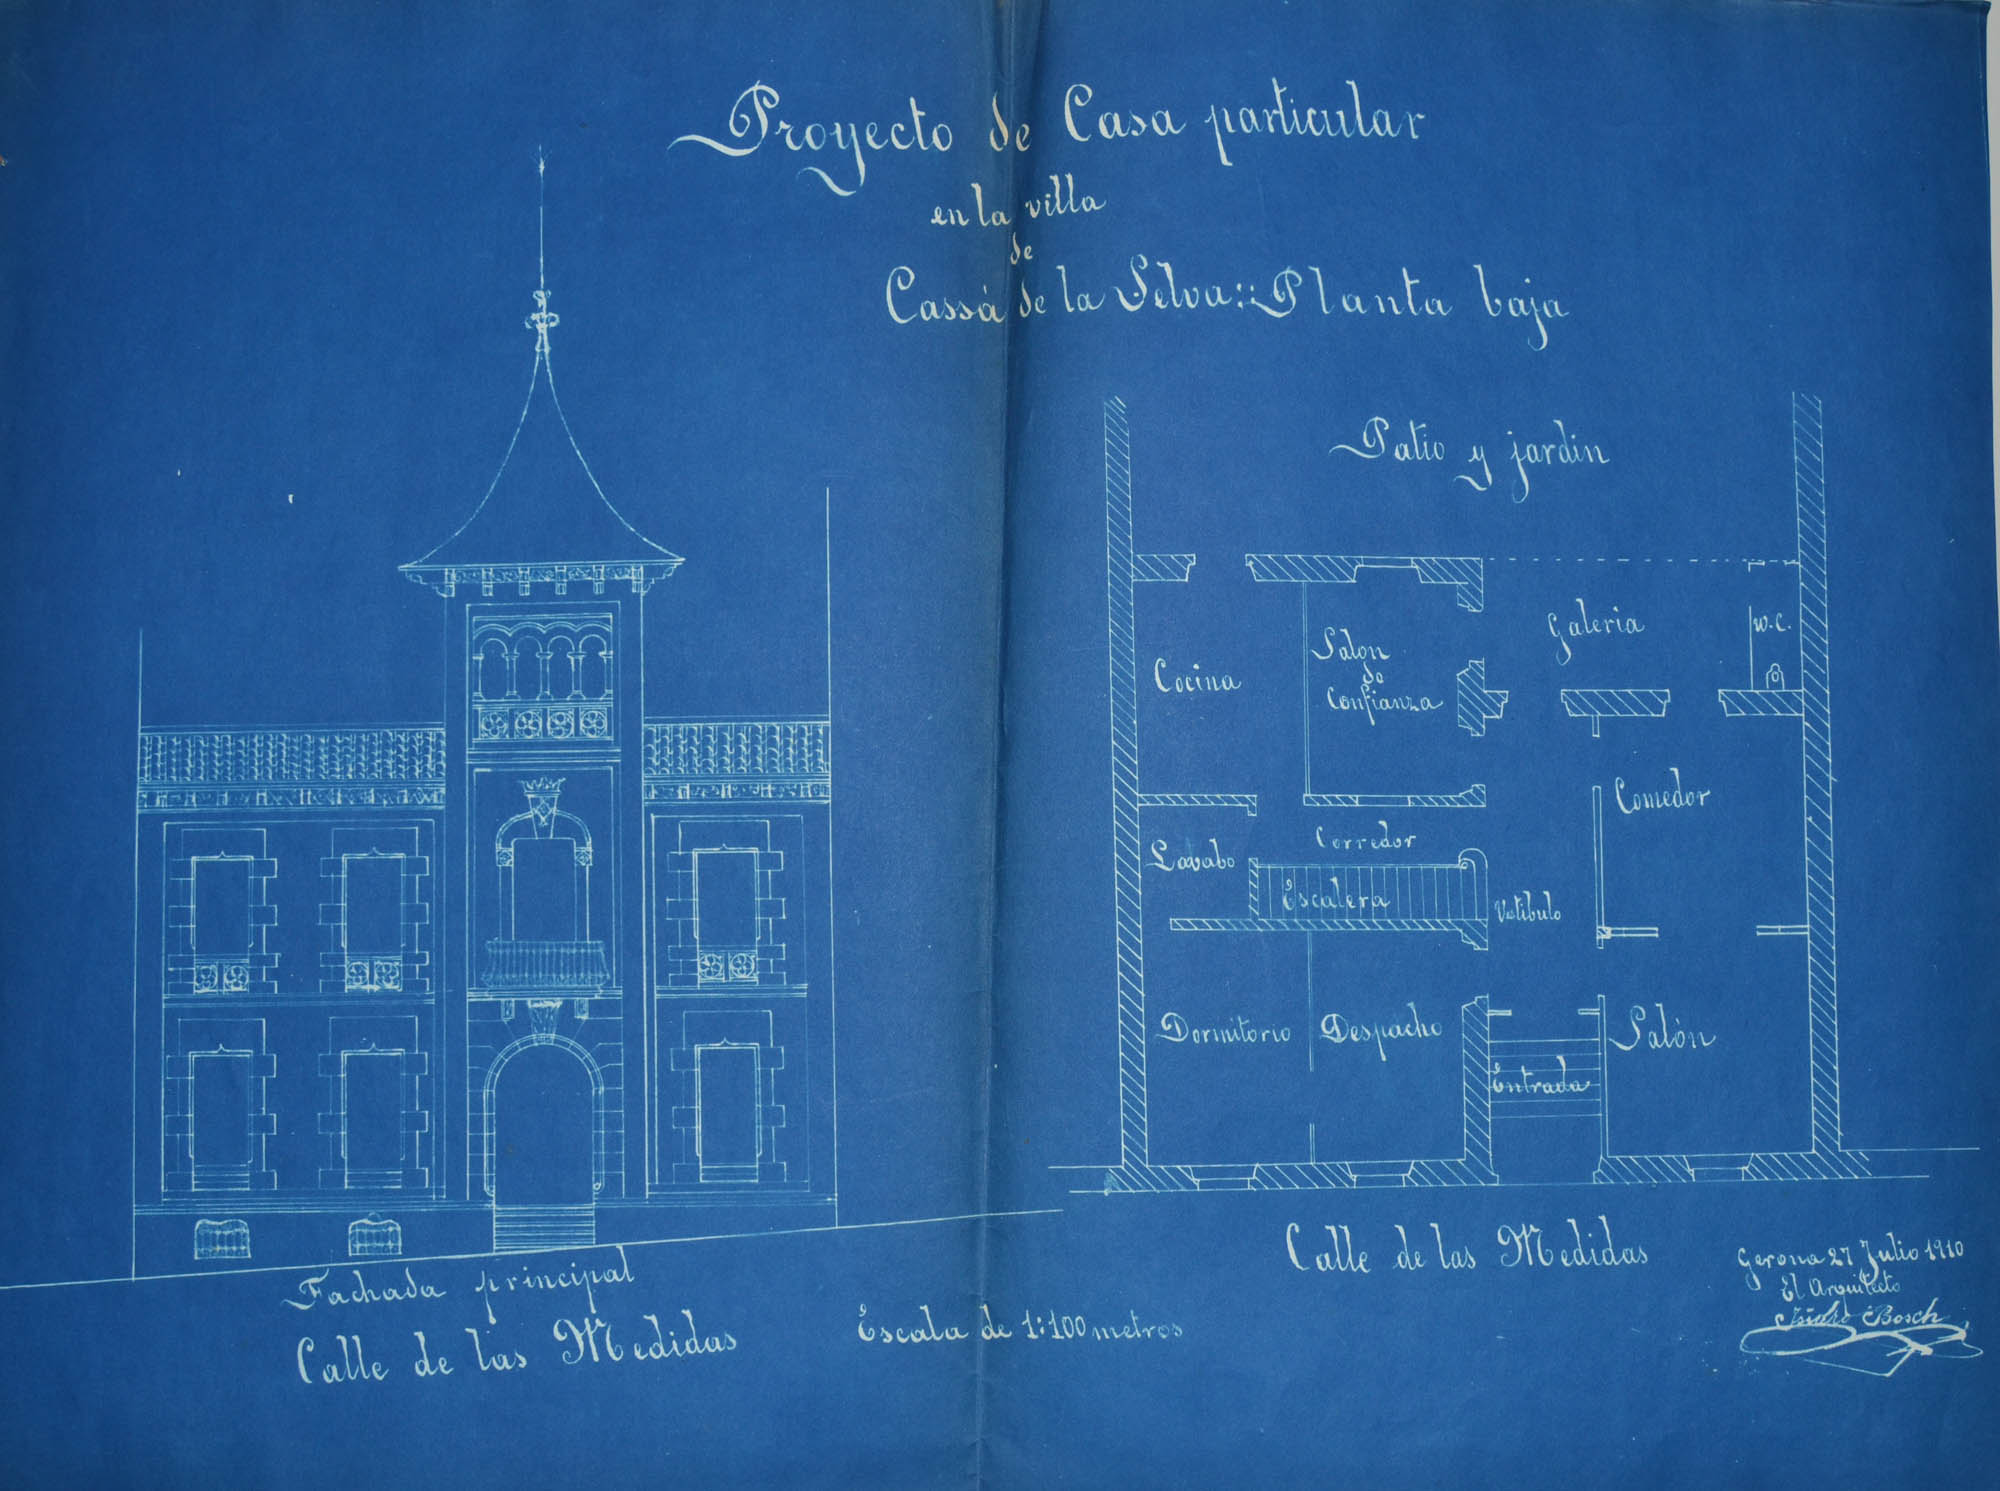 Proyecto de Casa particular
en la villa
de
Cassá de la Selva::Planta baja
Patio y jardin
Galeria
W.C.
Salon
de
Confianza
Cocina
Comedor
Corredor
Lavabo
Escalera
Vestibulo
Dormitorio
Despacho
Salón
Entrada
Calle de las Medidas
Fachada principal
Calle de las Medidas
Escala de 1:100 metros
Gerona 27 Julio 1910
El Arquitecto
Isidro Bosch